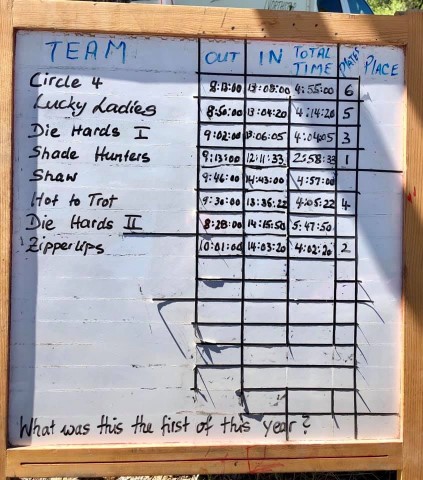 TEAM OUT IN TOTAL TIME PLATES PLACE
Circle 4 8:13:00 13:08:00 4:55:00 6
Lucky Ladies 8:50:00 13:04:20 4:14:20 5
Die Hards I 9:02:00 13:06:05 4:04:05 3
Shade Hunters 9:13:00 12:11:33 2:58:33 1
Shaw 9:46:00 14:43:00 4:57:00
Hot to Trot 9:30:00 13:35:22 4:05:22 4
Die Hards II 8:28:00 14:15:50 5:47:50
ZipperUps 10:01:00 14:03:20 4:02:20 2
What was this the first of this year?